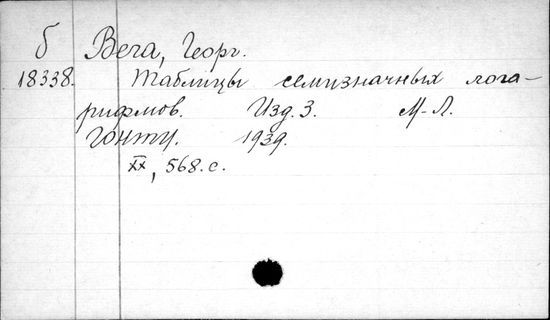 б Вега, Георг.
18338. Таблицы семизначных лога-
рифмов. Изд. 3. М.-Л.
Гонти. 1939.
XX, 568. с.